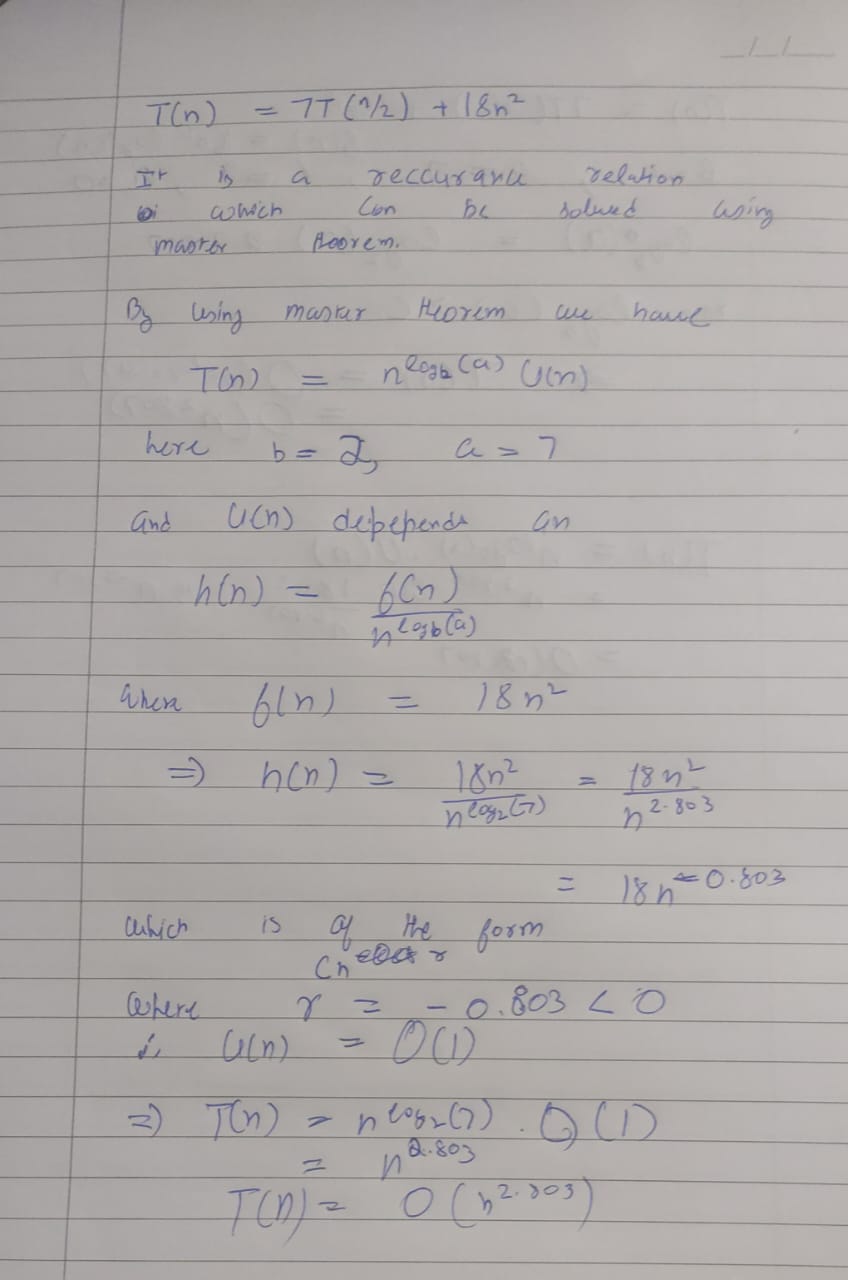 T(n) = 7T(n/2) + 18n²
It is a reccurance relation
which can be solved using
master theorem.
By using master theorem we have
T(n) = n^log_b(a) U(n)
here b = 2, a = 7
and U(n) depepends on
h(n) = f(n)/n^log_b(a)
where f(n) = 18n²
⇒ h(n) = 18n²/n^log₂(7) = 18n²/n^2.803
= 18n^-0.803
which is of the form
Cn^r
where r = -0.803 < 0
∴ U(n) = O(1)
⇒ T(n) = n^log₂(7) . O(1)
= n^2.803
T(n) = O(n^2.803)